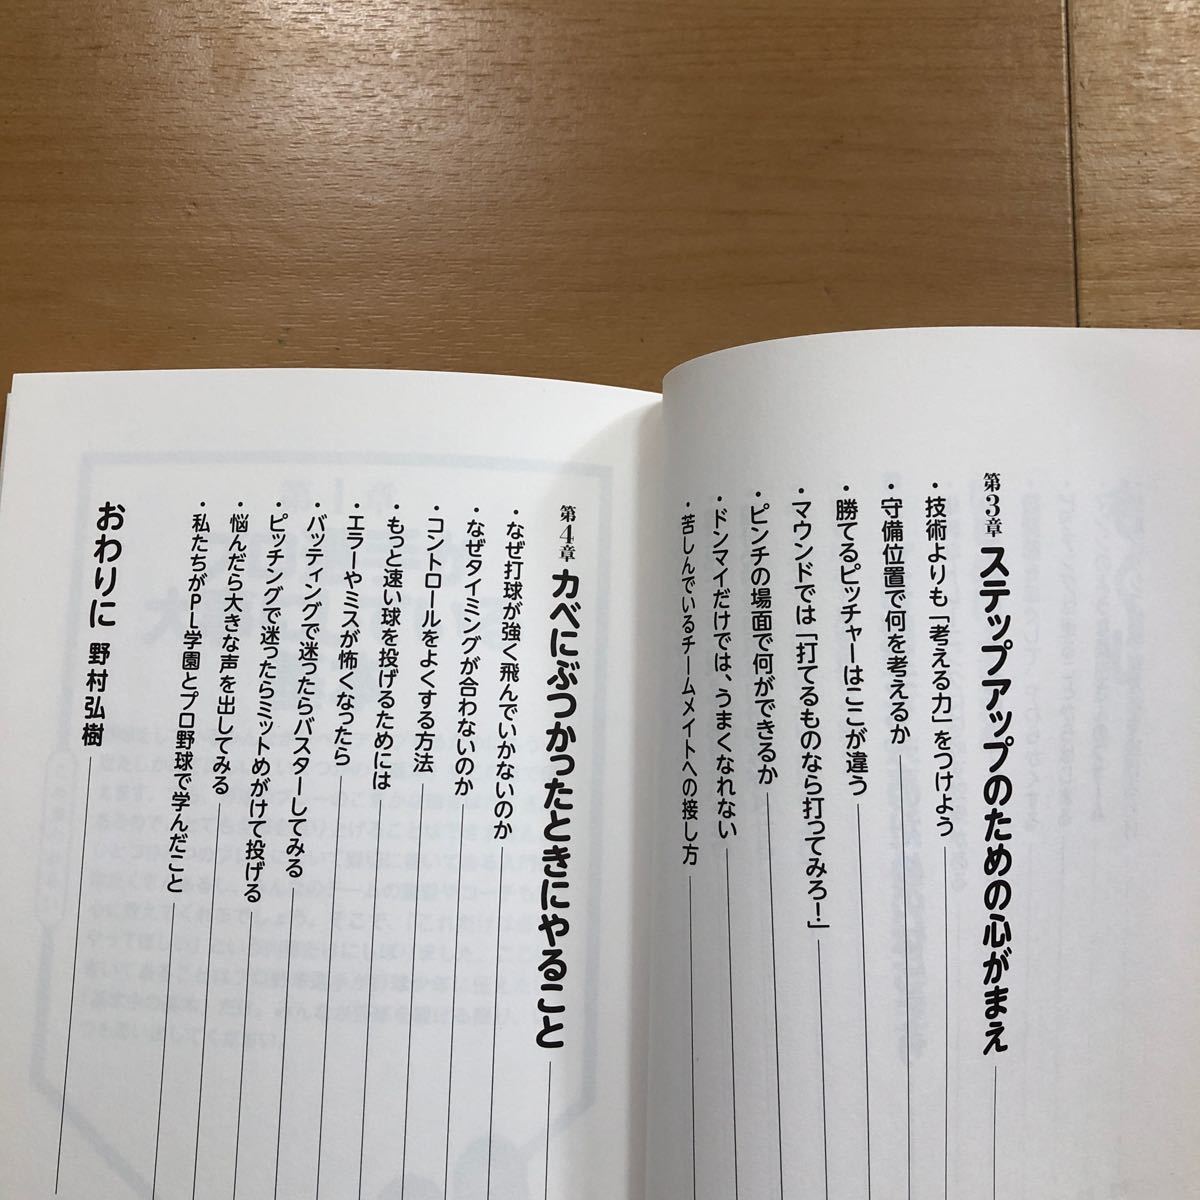 第3章 ステップアップのための心がまえ
・技術よりも「考える力」をつけよう
・守備位置で何を考えるか
・勝てるピッチャーはここが違う
・マウンドでは「打てるものなら打ってみろ!」
・ピンチの場面で何ができるか
・ドンマイだけでは、うまくなれない
・苦しんでいるチームメイトへの接し方
第4章 カベにぶつかったときにやること
・なぜ打球が強く飛んでいかないのか
・なぜタイミングが合わないのか
・コントロールをよくする方法
・もっと速い球を投げるためには
・エラーやミスが怖くなったら
・バッティングで迷ったらバスターしてみる
・ピッチングで迷ったらミットめがけて投げる
・悩んだら大きな声を出してみる
・私たちがPL学園とプロ野球で学んだこと
おわりに 野村弘樹